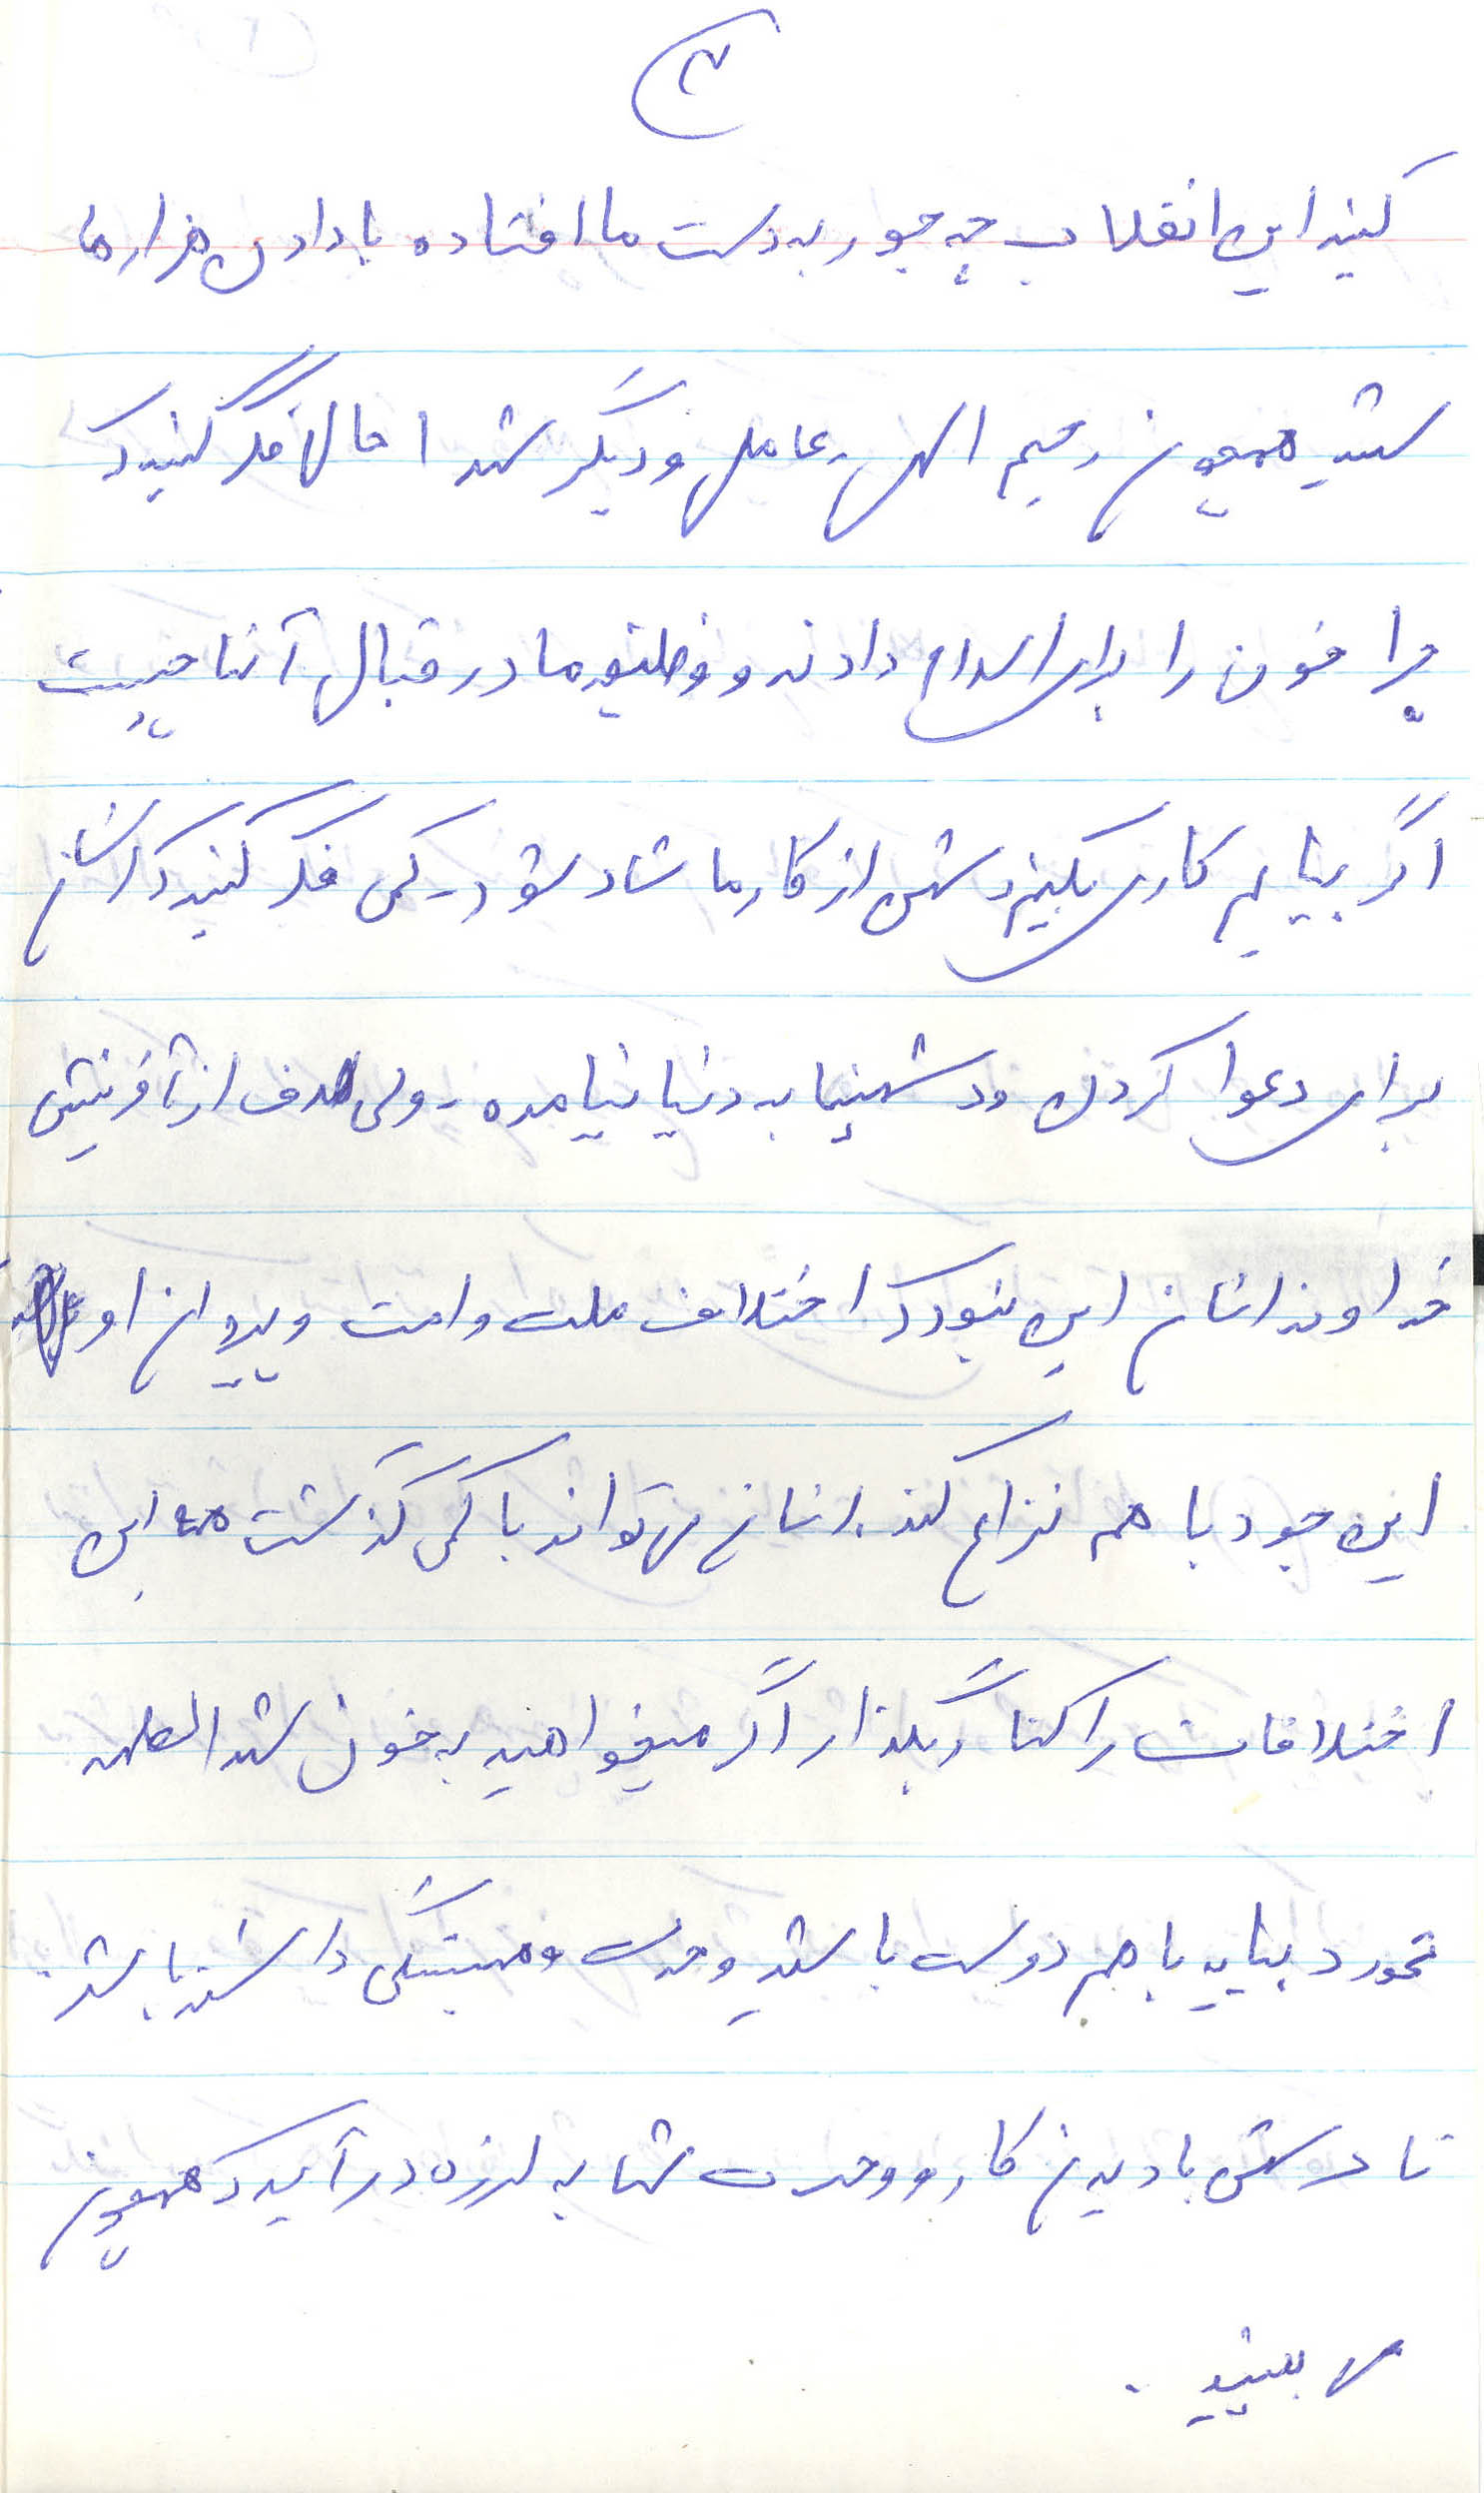 ۲
کنید این انقلاب چه جور به دست ما افتاده با دادن هزارها
شهید همچون رحیم الهی - عاملی و دیگر شهدا حال فکر کنید که
چرا خون را برای اسلام دادند و وظیفه ما در قبال آنها چیست
اگر بیایم کاری بکنیم دشمن از کار ما شاد شود - کمی فکر کنید که انسان
برای دعوا کردن و دشمنیها به دنیا نیامده - ولی هدف از آفرینش
خداوند انسان این نبود که اختلاف ملت و امت و پیروان او
این جور با هم نزاع کنند. انسان می تواند با کمی گذشت این
اختلافات را کنار بگذار اگر میخواهید به خون شهدا لطمه
نخورد بیایید با هم دوست باشید وحدت و همبستگی داشته باشید.
تا دشمن با دیدن کار و وحدت شما به لرزه درآید که همچون
می بینید.